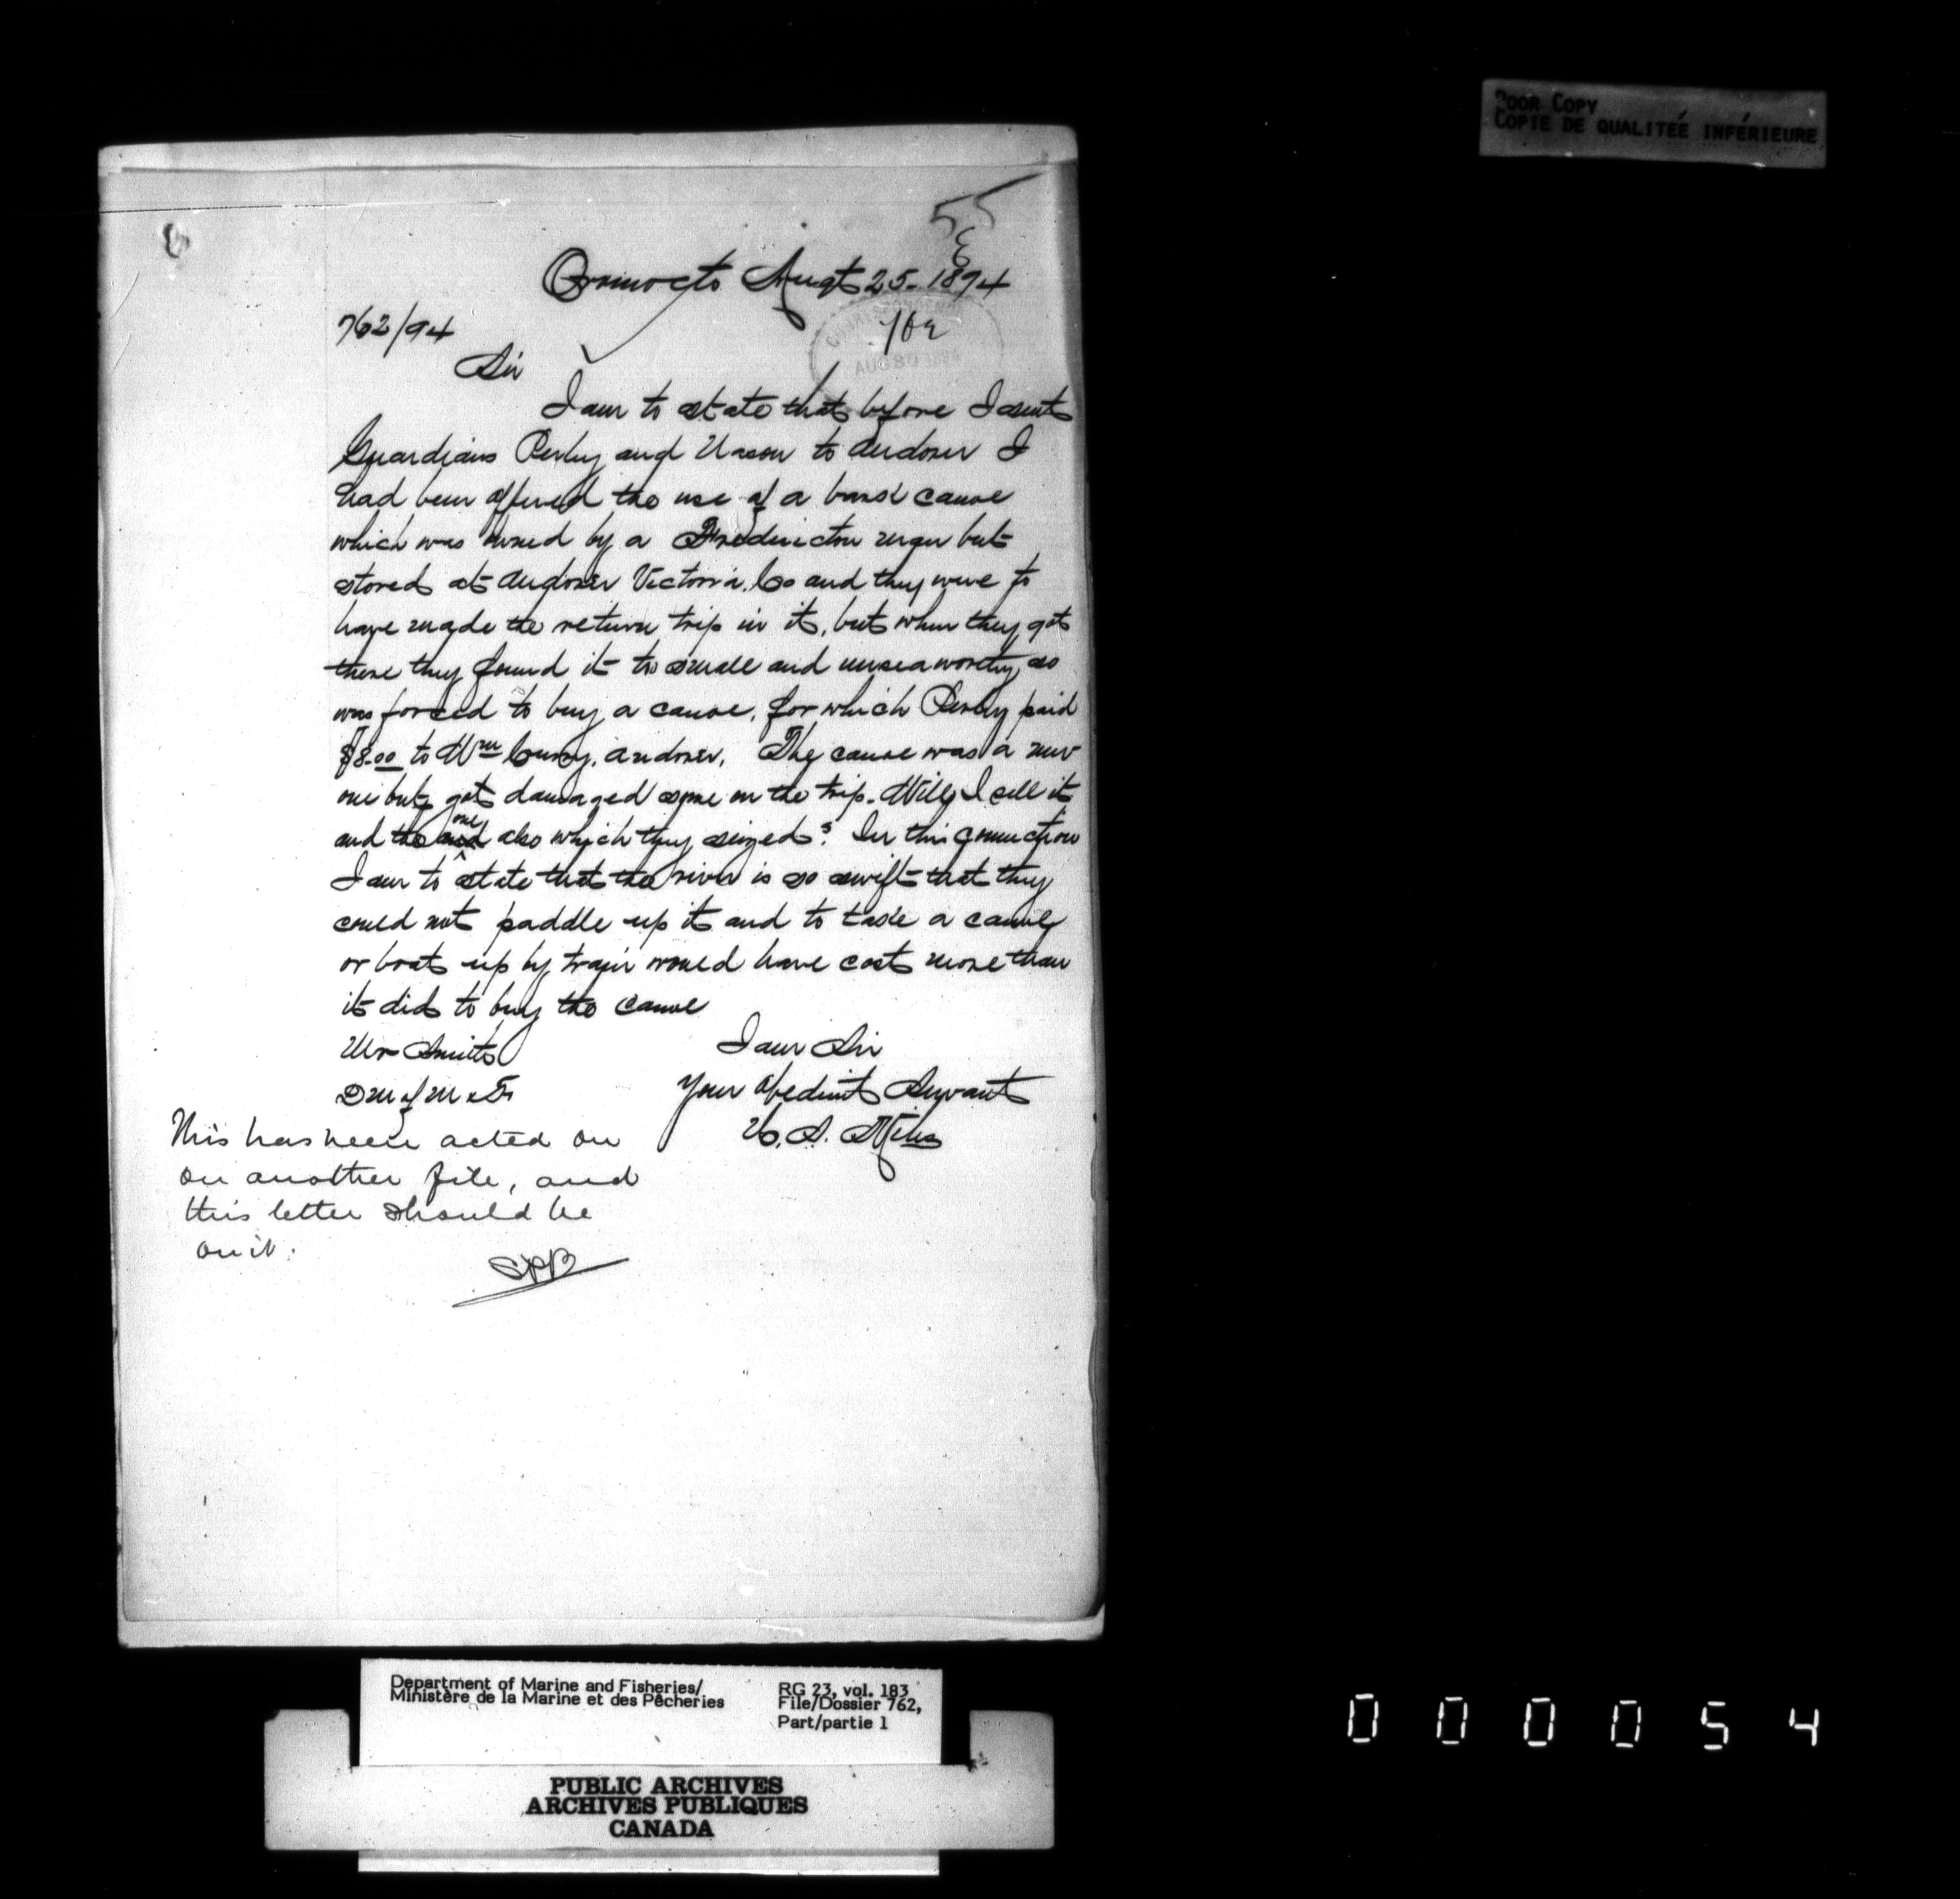 Poor Copy
Copie de qualiteé inférieure
55
Oromocto Augt 25. 1894
762/94
Sir
I am to state that before I sent
Guardians Perley and Nason to Andover I
had been offered the use of a bark canoe
which was owned by a Fredericton man but
stored at Andover Victoria. Co and they were to
have made the return trip in it, but when they got
there they found it to small and unseaworthy, so
was forced to buy a canoe, for which Perley paid
$8.00 to Wm Curry, Andover. The canoe was a new
one but got damaged some on the trip. Will I sell it
and the one also which they seized? In this connection
I am to state that the river is so swift that they
could not paddle up it and to take a canoe
or boat up by train would have cost more than
it did to buy the canoe
Mr Smith
I am Sir
D M of M & F
Your Obedient Servant
H. S. Miles
This has been acted on
on another file, and
this letter should be
on it.
Department of Marine and Fisheries/
Ministère de la Marine et des Pêcheries
RG 23, vol. 183
File/Dossier 762,
Part/partie 1
PUBLIC ARCHIVES
ARCHIVES PUBLIQUES
CANADA
000054